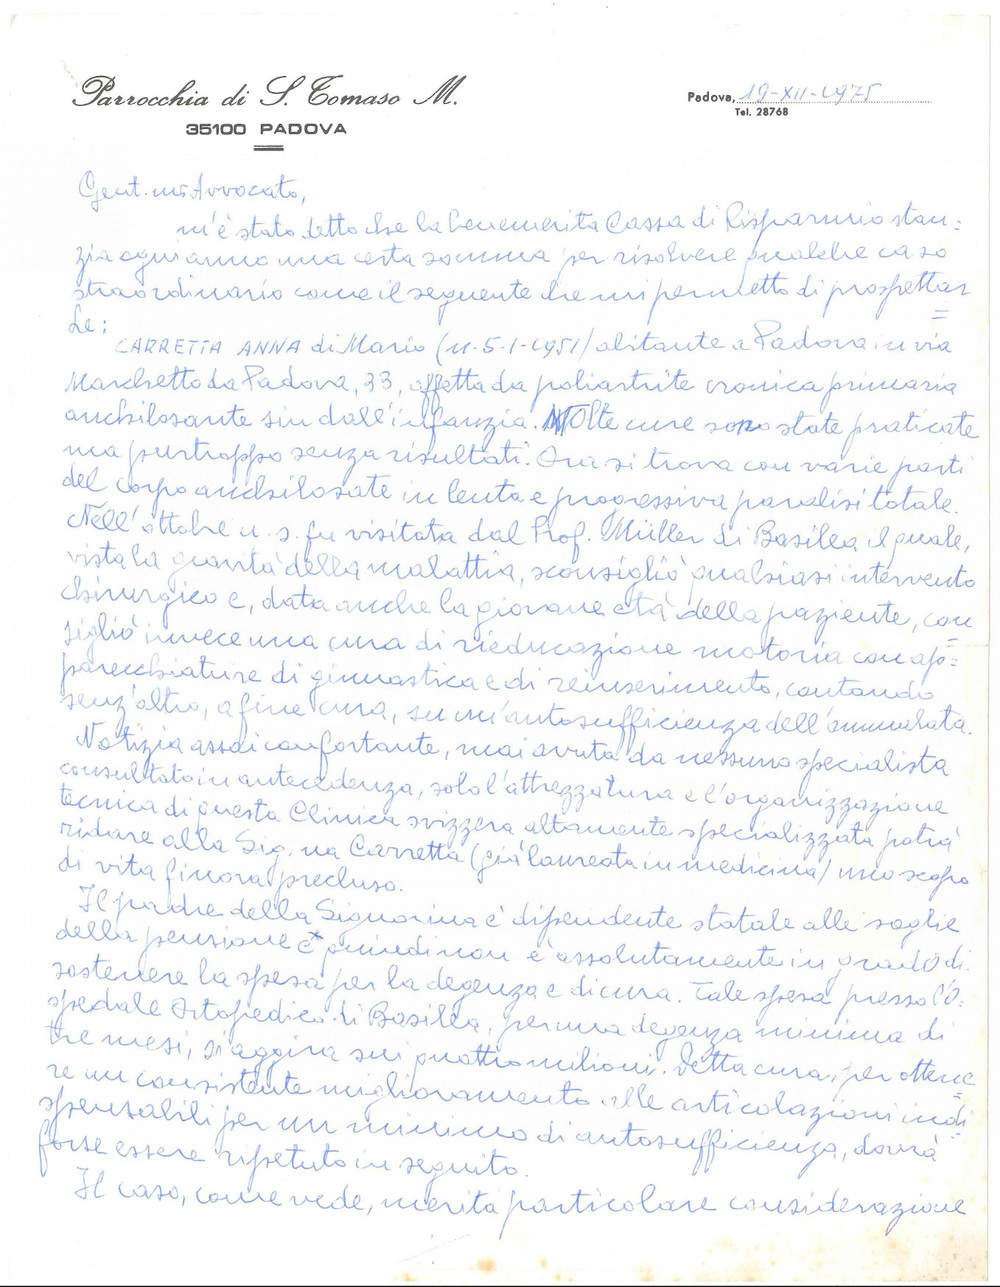 Parrocchia di S. Tomaso M.
35100 PADOVA
Padova, 19-XII-1975
Tel. 28768
Gent.mo Avvocato,
m'è stato detto che la benemerita Cassa di Risparmio stan=
zia ogni anno una certa somma per risolvere qualche caso
straordinario come il seguente che mi permetto di prospettar
=
Le:
CARRETTA ANNA di Mario (n. 5-1-1951) abitante a Padova in via
Marchetto da Padova, 33, affetta da poliartrite cronica primaria
anchilosante sin dall'infanzia. Molte cure sono state praticate
ma purtroppo senza risultati. Ora si trova con varie parti
del corpo anchilosate in lenta e progressiva paralisi totale.
Nell'ottobre u. s. fu visitata dal Prof. Müller di Basilea il quale,
vista la gravità della malattia, sconsigliò qualsiasi intervento
chirurgico e, data anche la giovane età della paziente, con
=
sigliò invece una cura di rieducazione motoria con ap=
parecchiature di ginnastica e di reinserimento, contando
senz'altro, a fine cura, su un'autosufficienza dell'ammalata.
Notizia assai confortante, mai avuta da nessuno specialista
consultato in antecedenza, solo l'attrezzatura e l'organizzazione
tecnica di questa Clinica svizzera altamente specializzata potrà
ridare alla Sig.na Carretta (già laureata in medicina) uno scopo
di vita finora precluso.
Il padre della Signorina è dipendente statale alle soglie
della pensione e quindi non è assolutamente in grado di
sostenere la spesa per la degenza e di cura. Tale spesa presso l'O=
spedale Ortopedico di Basilea, per una degenza minima di
tre mesi, si aggira sui quattro milioni. Detta cura, per ottene
=
re un consistente miglioramento alle articolazioni indi
=
spensabili per un minimo di autosufficienza, dovrà
forse essere ripetuto in seguito.
Il caso, come vede, merita particolare considerazione